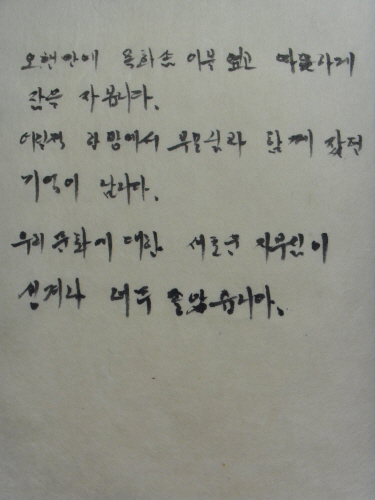 오랜만에 목화솜 이불 덮고 따뜻하게
잠을 자봅니다.
어린적 안방에서 부모님과 함께 잤던
기억이 납니다.
우리문화에 대한 새로운 자부심이
생겨나 너무 좋았습니다.